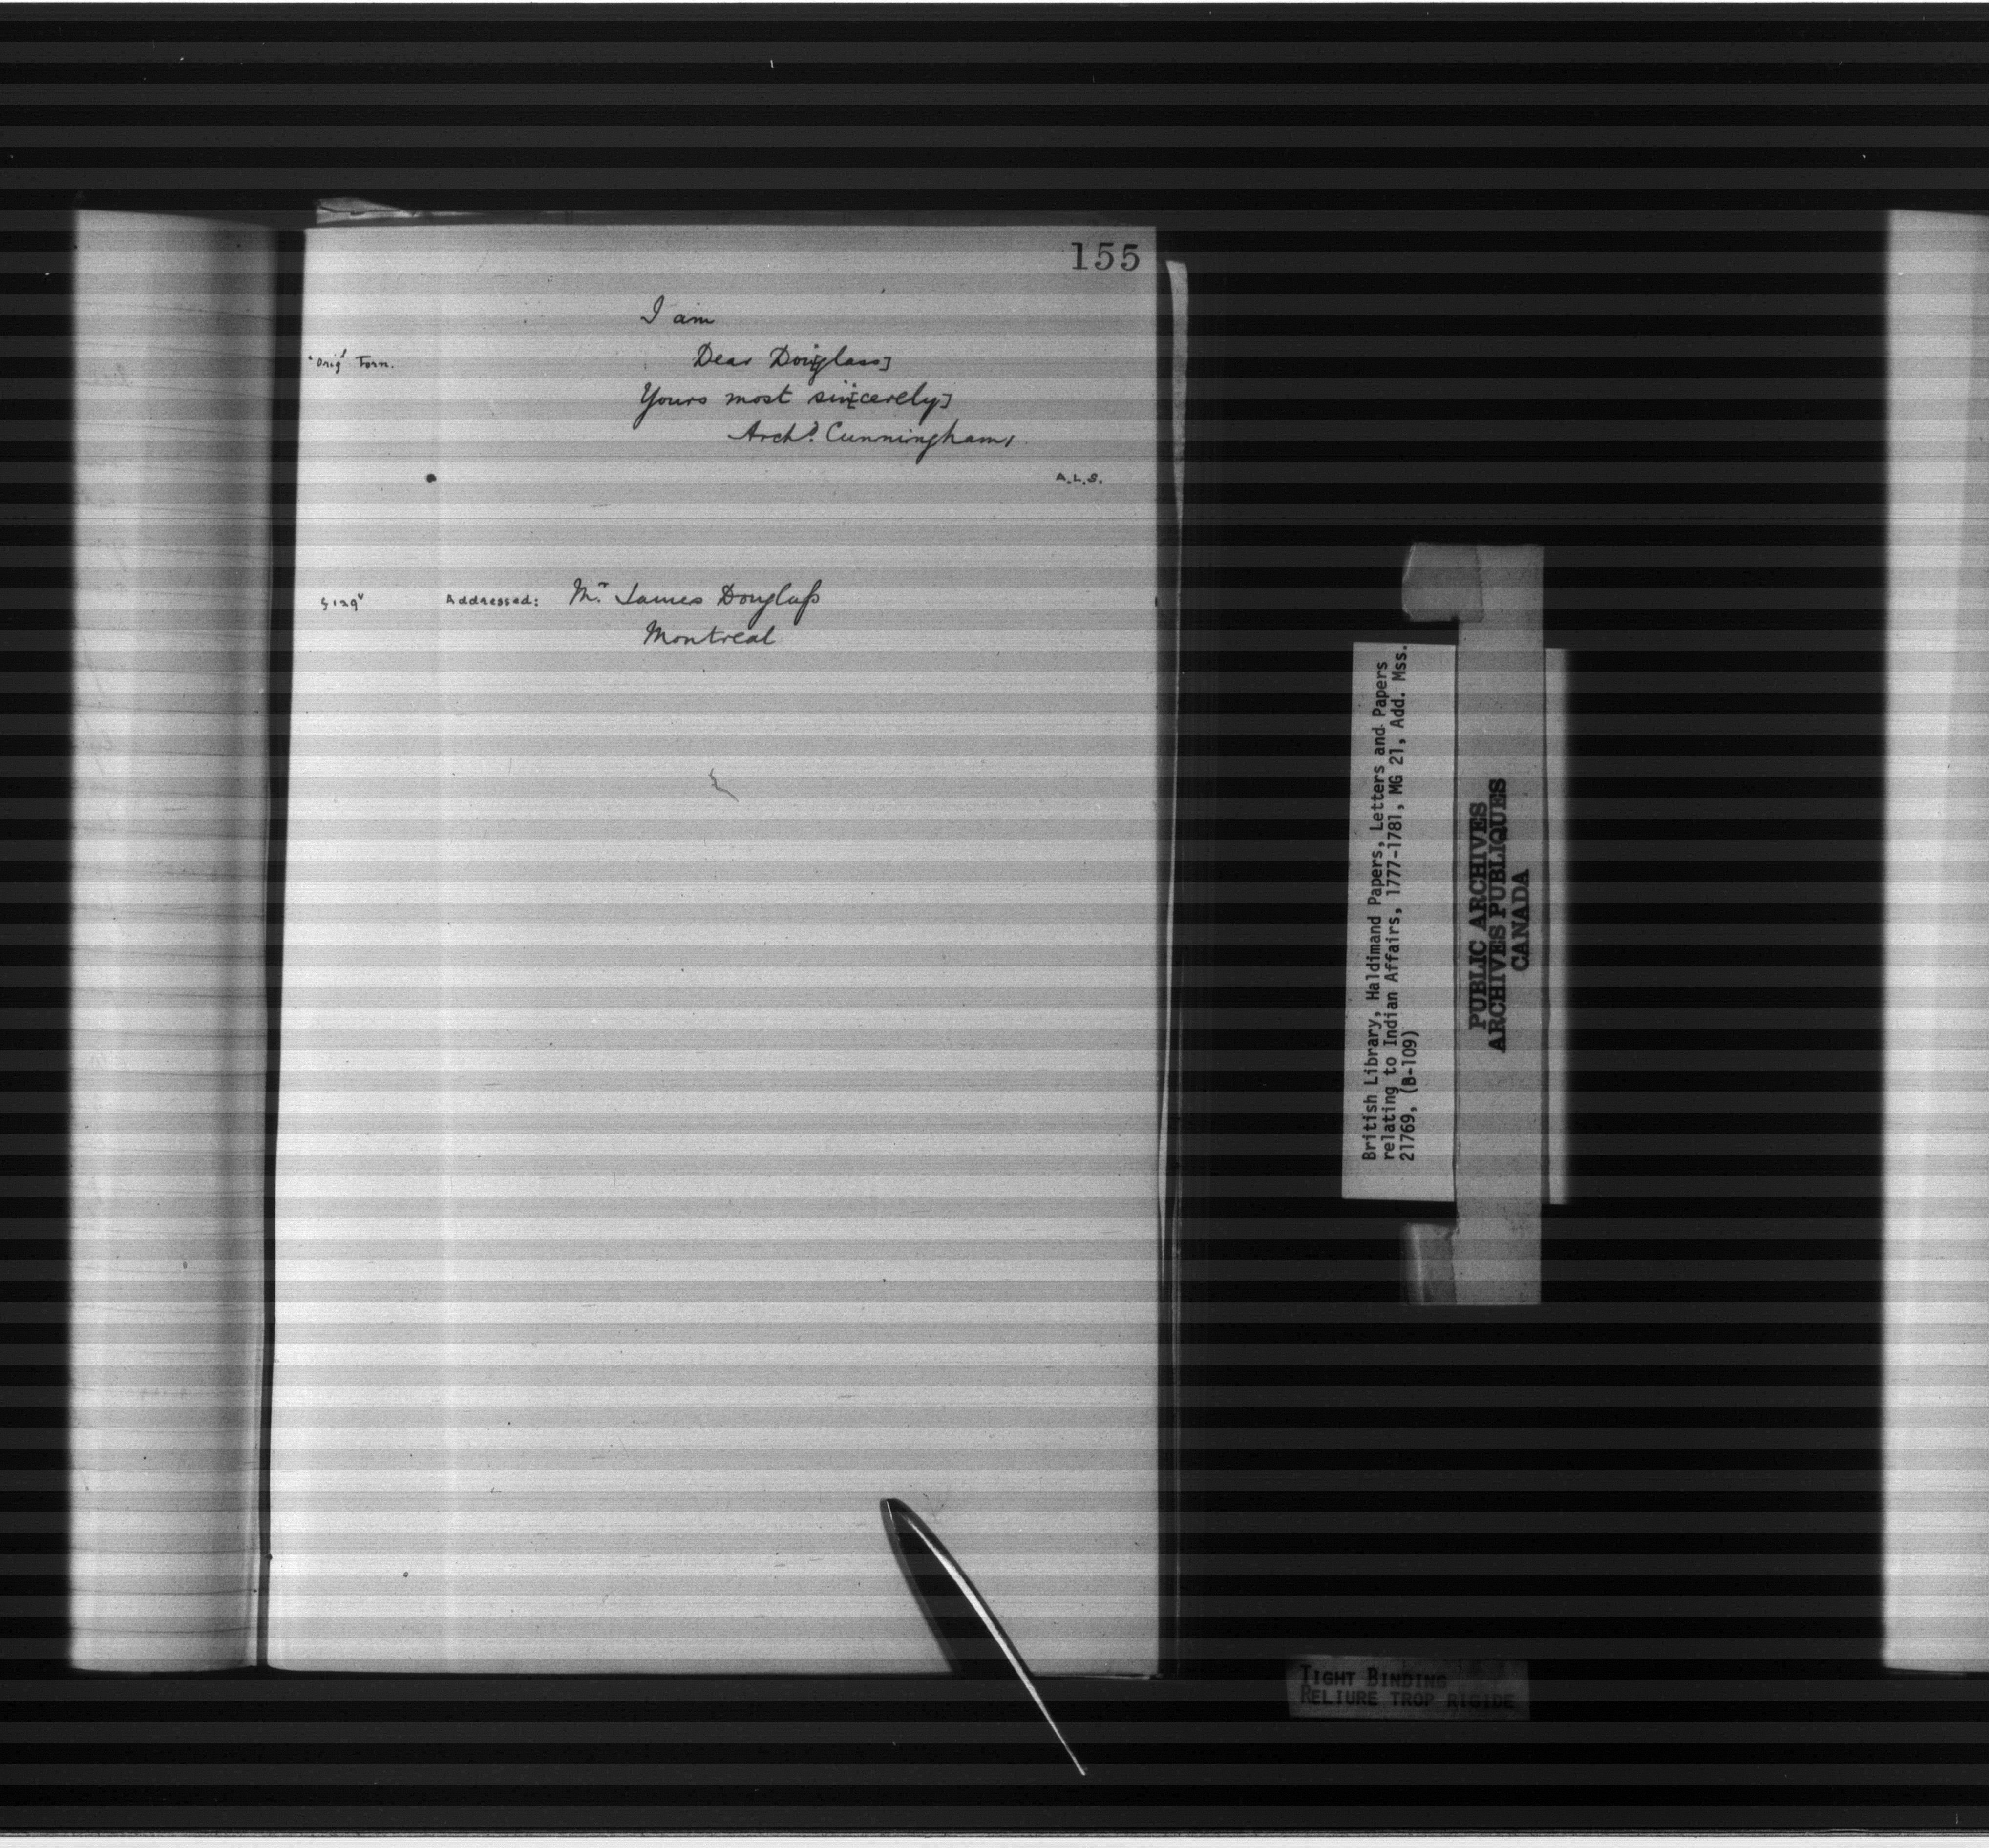 155
I am
"Orig.l Torn. Dear Dou[glass]
Yours most sin[cerely]
Arch.d Cunningham,
A.L.S.
f 129v Addressed: Mr. James Douglass
Montreal
British Library, Haldimand Papers, Letters and Papers
relating to Indian Affairs, 1777-1781, MG 21, Add. Mss.
21769, (B-109)
PUBLIC ARCHIVES
ARCHIVES PUBLIQUES
CANADA
TIGHT BINDING
RELIURE TROP RIGIDE